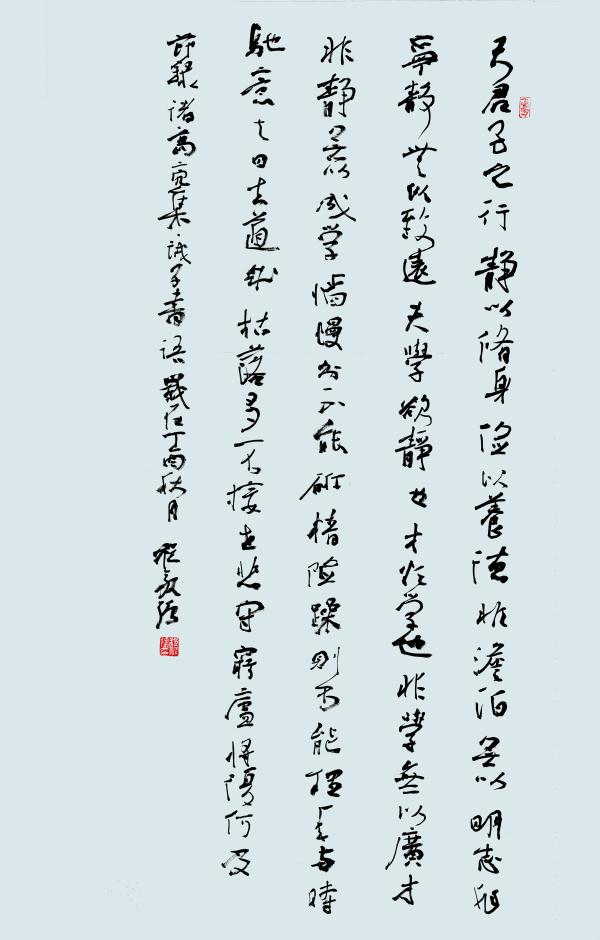 夫君子之行静以脩身俭以養德非澹泊無以明志非
寧静無以致遠夫學欲静也才须学也非學無以廣才
非静無以成学慆慢則不能研精险躁则不能理年与時
馳意与日去遂成枯落多不接世悲守窮廬将復何及
節録诸葛亮集·诫子書语歲在丁酉秋月